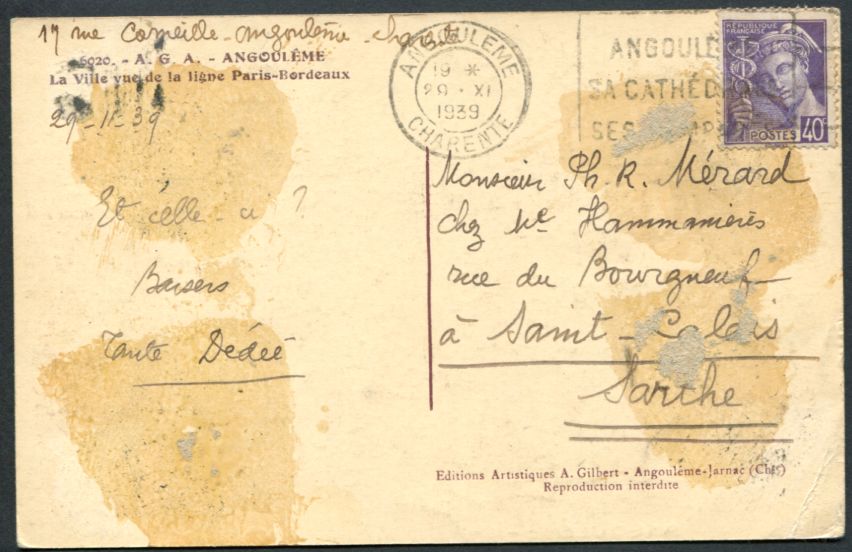 17 rue Corneille - Angoulême - Charente
6020. - A. G. A. - ANGOULÊME
La Ville vue de la ligne Paris-Bordeaux
29-11-39
Et celle-ci ?
Baisers
Tante Dédée
ANGOULEME
19 *
29 · XI
1939
CHARENTE
ANGOULÊ
SA CATHÉD
SES
RÉPUBLIQUE
FRANÇAISE
POSTES 40c
Monsieur Ph. R. Mérard
chez Me
rue du Bourgneuf
à Saint-Calais
Sarthe
Editions Artistiques A. Gilbert - Angoulême-Jarnac (Chte)
Reproduction interdite